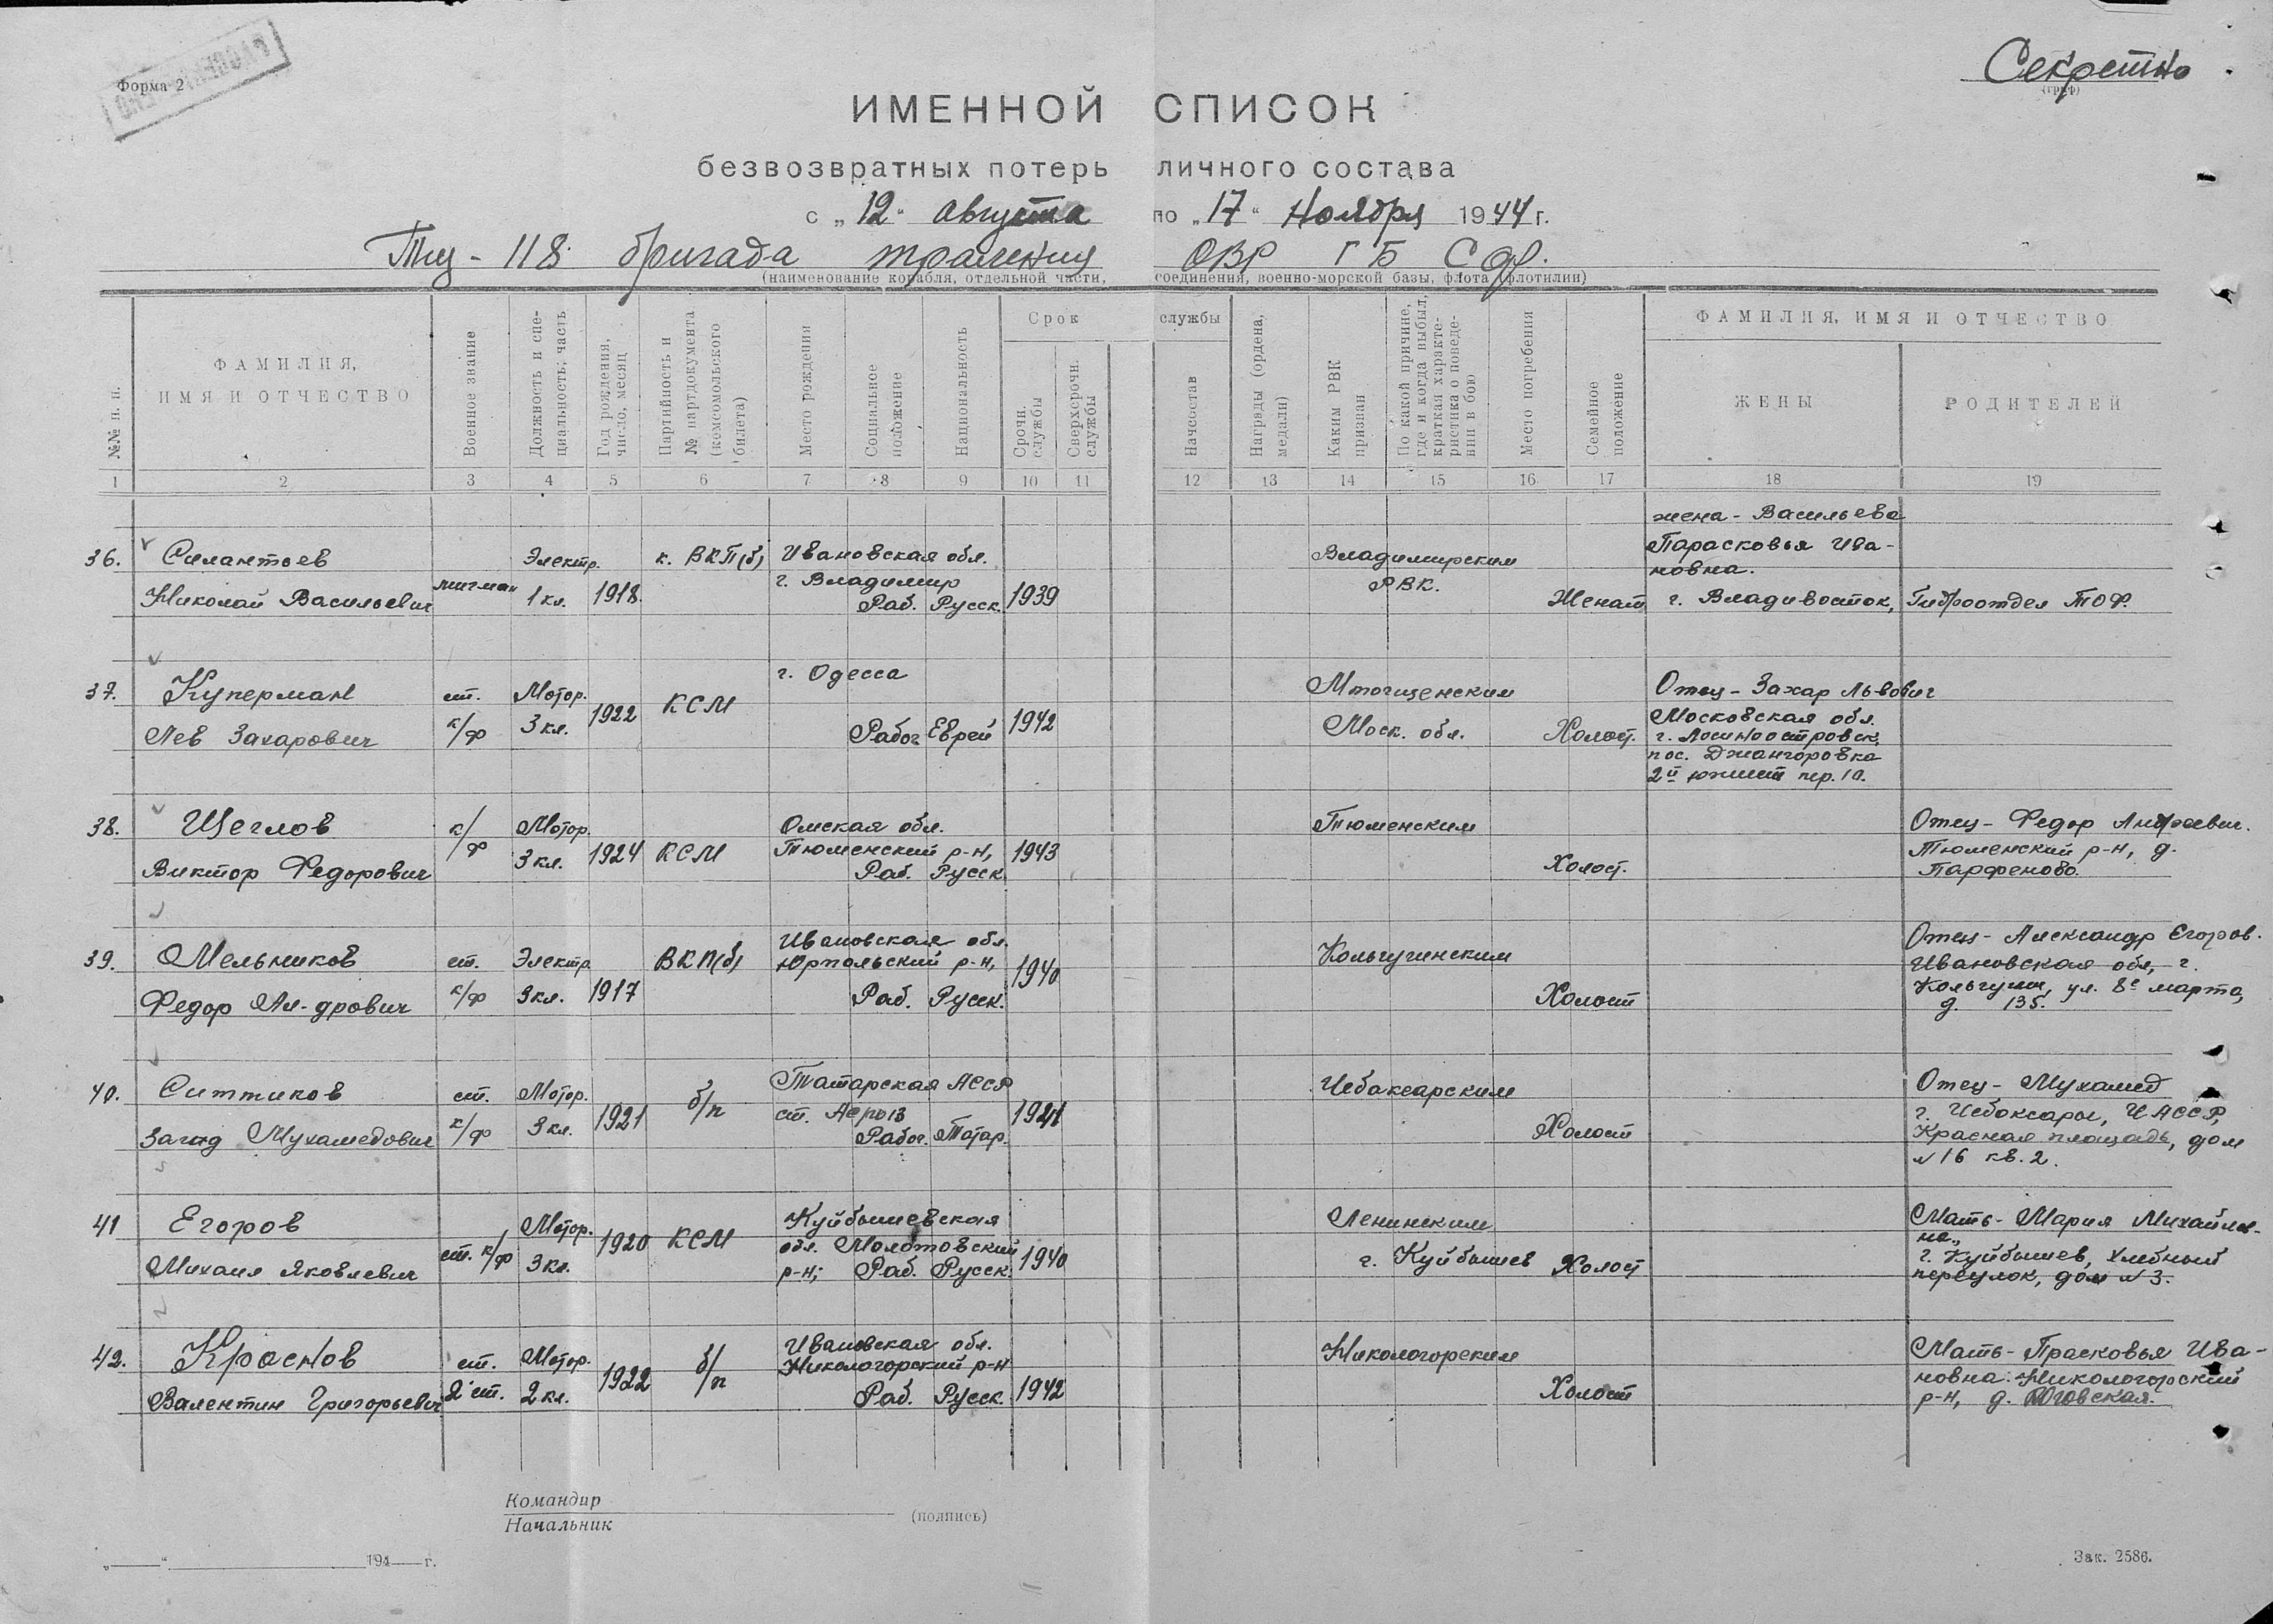 Форма 2
Секретно
(гриф)
ИМЕННОЙ СПИСОК
безвозвратных потерь личного состава
с „12“ августа по „17“ Ноября 1944 г.
Тщ-118 бригада траления ОВР ГБ СФ.
(наименование корабля, отдельной части, соединения, военно-морской базы, флота (флотилии)
№№ п. п.
ФАМИЛИЯ,
ИМЯ И ОТЧЕСТВО
Военное звание
Должность и спе-
циальность, часть
Год рождения,
число, месяц
Партийность и
№ партдокумента
(комсомольского
билета)
Место рождения
Социальное
положение
Национальность
Срок службы
Срочн.
службы
Сверхсрочн.
службы
Начсостав
Награды (ордена,
медали)
Каким РВК
призван
По какой причине,
где и когда выбыл,
краткая характе-
ристика о поведе-
нии в бою
Место погребения
Семейное
положение
ФАМИЛИЯ, ИМЯ И ОТЧЕСТВО
ЖЕНЫ
РОДИТЕЛЕЙ
1 2 3 4 5 6 7 8 9 10 11 12 13 14 15 16 17 18 19
36.
Силантьев
Николай Васильевич
мичман
Электр.
1 кл.
1918
к. ВКП(б)
Ивановская обл.
г. Владимир
Раб. Русск.
1939
Владимирским
РВК.
Женат
жена - Васильева
Парасковья Ива-
новна.
г. Владивосток, Гидроотдел ТОФ.
37.
Куперман
Лев Захарович
ст.
к/ф
Мотор.
3 кл.
1922
КСМ
г. Одесса
Рабоч Еврей
1942
Моск. обл.
Холост.
Отец - Захар Львович
Московская обл.
г. Лосиноостровск,
пос. Джангоровка
пер. 10.
38.
Щеглов
Виктор Федорович
к/ф
Мотор.
3 кл.
1924
КСМ
Омская обл.
Тюменский р-н,
Раб. Русск
1943
Тюменским
Холост.
Отец - Федор
Тюменский р-н, д.
Парфеново.
39.
Мельников
Федор Ал-дрович
ст.
к/ф
Электр
3 кл.
1917
ВКП(б)
Ивановская обл.
р-н,
Раб. Русск.
1940
Кольчугинским
Холост
Отец - Александр Егоров.
Ивановская обл, г.
Кольчугин, ул. 8е марта,
д. 135.
40.
Ситтиков
Загид Мухамедович
ст.
к/ф
Мотор.
3 кл.
1921
б/п
Татарская АССР
ст. Агрыз
Рабоч. Татар.
1941
Чебоксарским
Холост
Отец - Мухамед
г. Чебоксары, ЧАССР,
Красная площадь, дом
№16 кв. 2.
41
Егоров
Михаил Яковлевич
ст. к/ф
Мотор.
3 кл.
1920
КСМ
Куйбышевская
обл. Молотовский
р-н; Раб. Русск.
1940
Ленинским
г. Куйбышев
Холост
Мать - Мария Михайлов-
на,
г. Куйбышев, Хлебный
переулок, дом №3.
42.
Краснов
Валентин Григорьевич
ст.
2 ст.
Мотор.
2 кл.
1922
б/п
Ивановская обл.
Никологорский р-н
Раб. Русск.
1942
Никологорским
Холост
Мать - Прасковья Ива-
новна. Никологорский
р-н, д. Юговская.
Командир
Начальник
(подпись)
„——“ 194 г.
Зак. 2586.